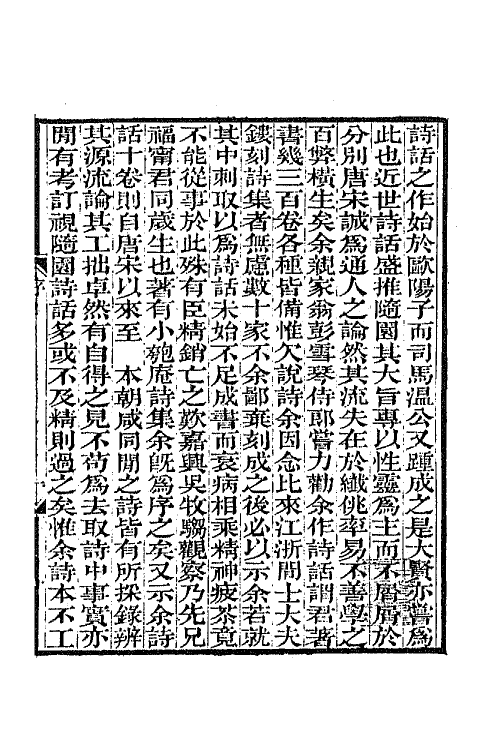 詩話之作始於歐陽子而司馬溫公又踵成之是大賢亦嘗爲
此也近世詩話盛推隨園其大旨專以性靈爲主而不屑屑於
分別唐宋誠爲通人之論然其流失在於纖佻率易不善學之
百弊橫生矣余親家翁彭雪琴侍郎嘗力勸余作詩話謂君著
書幾三百卷各種皆備惟欠說詩余因念比來江浙間士大夫
鏤刻詩集者無慮數十家不余鄙棄刻成之後必以示余若就
其中刺取以爲詩話未始不足成書而衰病相乘精神疲苶竟
不能從事於此殊有臣精銷亡之歎嘉興吳牧騶觀察乃先兄
福甯君同歲生也著有小匏庵詩集余旣爲序之矣又示余詩
話十卷則自唐宋以來至 本朝咸同間之詩皆有所採錄辨
其源流論其工拙卓然有自得之見不苟爲去取詩中事實亦
閒有考訂視隨園詩話多或不及精則過之矣惟余詩本不工
序